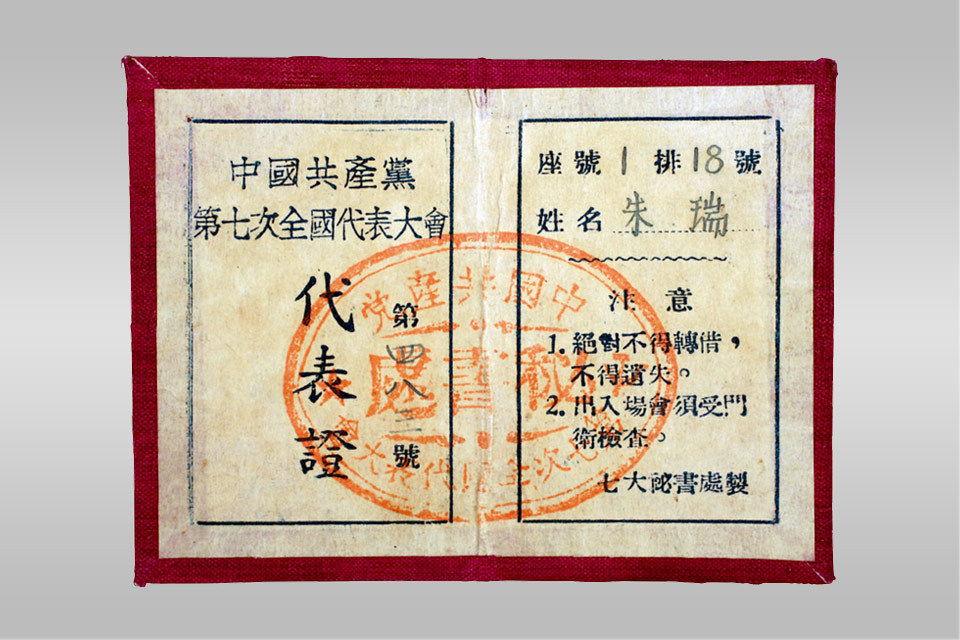 中國共產黨
第七次全國代表大會
代表證
第四八三號
座號1排18號
姓名 朱瑞
注意
1. 絕對不得轉借，
不得遺失。
2. 出入場會須受門
衛檢查。
七大祕書處製
中国共產党
秘書處
第七次全國代表大會